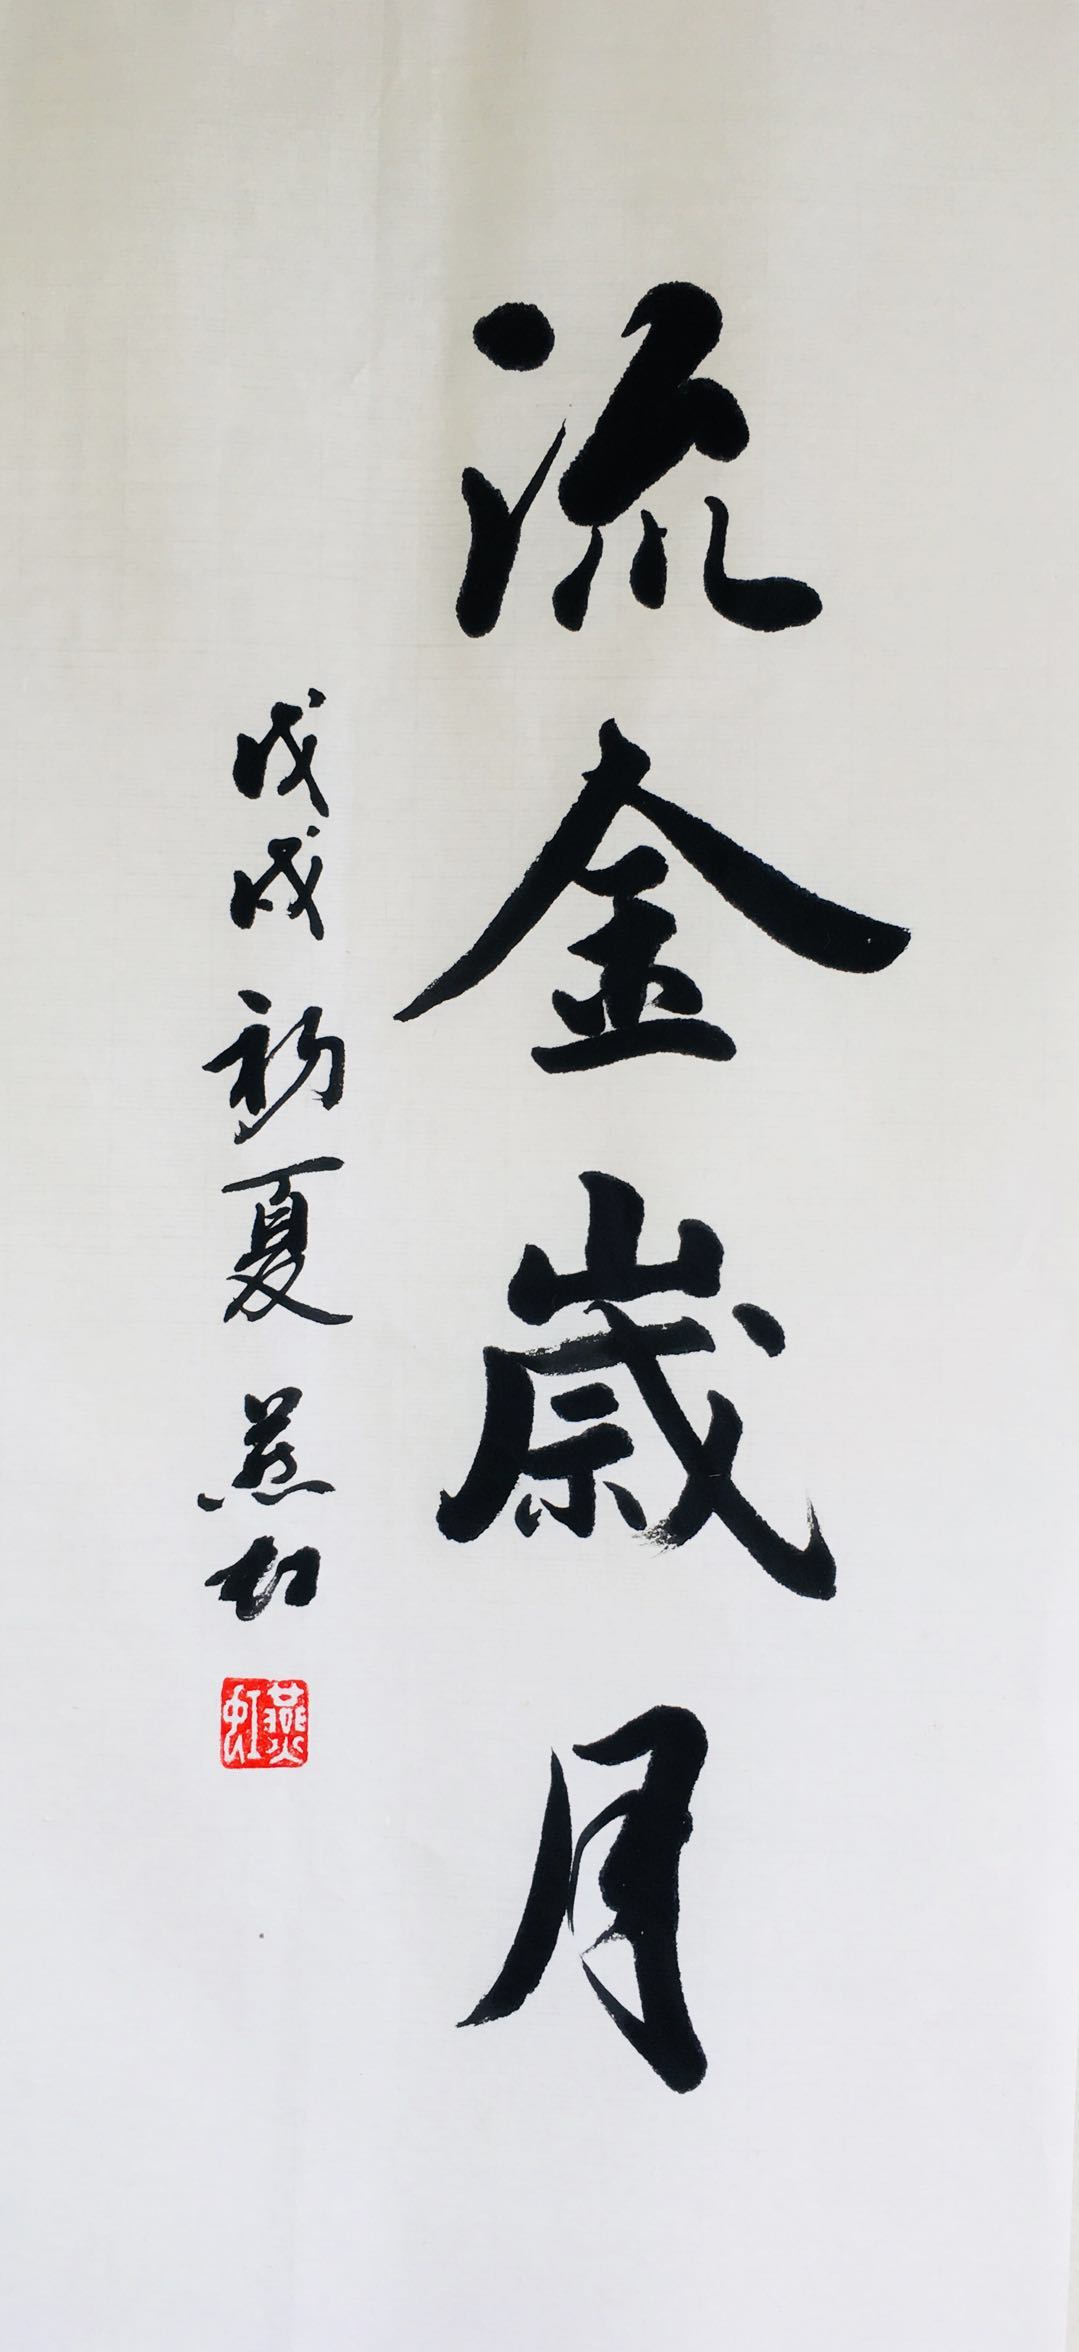 流金歲月
戊戌初夏燕虹
燕虹